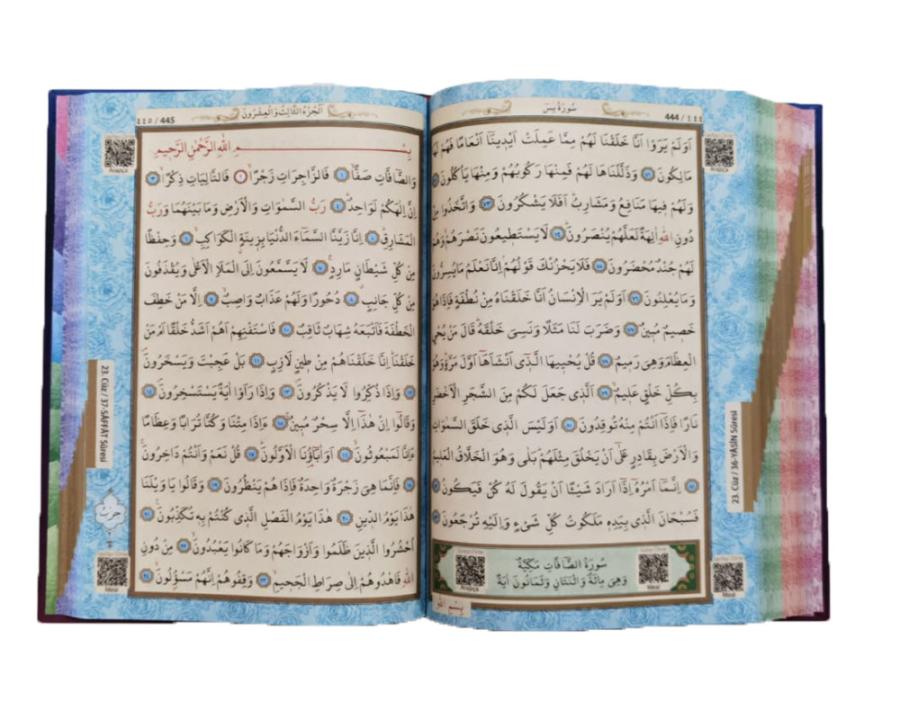 444 / ١١١
سُورَةُ يٰسٓ
اَوَلَمْ يَرَوْا اَنَّا خَلَقْنَا لَهُمْ مِمَّا عَمِلَتْ اَيْدِينَٓا اَنْعَامًا فَهُمْ لَهَا
مَالِكُونَ ﴿٧١﴾ وَذَلَّلْنَاهَا لَهُمْ فَمِنْهَا رَكُوبُهُمْ وَمِنْهَا يَأْكُلُونَ ﴿٧٢﴾
وَلَهُمْ فِيهَا مَنَافِعُ وَمَشَارِبُ اَفَلَا يَشْكُرُونَ ﴿٧٣﴾ وَاتَّخَذُوا مِنْ
دُونِ اللّٰهِ اٰلِهَةً لَعَلَّهُمْ يُنْصَرُونَ ﴿٧٤﴾ لَا يَسْتَطِيعُونَ نَصْرَهُمْ وَهُمْ
لَهُمْ جُنْدٌ مُحْضَرُونَ ﴿٧٥﴾ فَلَا يَحْزُنْكَ قَوْلُهُمْ اِنَّا نَعْلَمُ مَا يُسِرُّونَ
وَمَا يُعْلِنُونَ ﴿٧٦﴾ اَوَلَمْ يَرَ الْاِنْسَانُ اَنَّا خَلَقْنَاهُ مِنْ نُطْفَةٍ فَاِذَا هُوَ
خَصِيمٌ مُبِينٌ ﴿٧٧﴾ وَضَرَبَ لَنَا مَثَلًا وَنَسِيَ خَلْقَهُ قَالَ مَنْ يُحْيِ
الْعِظَامَ وَهِيَ رَمِيمٌ ﴿٧٨﴾ قُلْ يُحْيِيهَا الَّذِٓي اَنْشَاَهَٓا اَوَّلَ مَرَّةٍ وَهُوَ
بِكُلِّ خَلْقٍ عَلِيمٌ ﴿٧٩﴾ اَلَّذِي جَعَلَ لَكُمْ مِنَ الشَّجَرِ الْاَخْضَرِ
نَارًا فَاِذَٓا اَنْتُمْ مِنْهُ تُوقِدُونَ ﴿٨٠﴾ اَوَلَيْسَ الَّذِي خَلَقَ السَّمٰوَاتِ
وَالْاَرْضَ بِقَادِرٍ عَلٰٓى اَنْ يَخْلُقَ مِثْلَهُمْ بَلٰى وَهُوَ الْخَلَّاقُ الْعَلِيمُ
﴿٨١﴾ اِنَّمَٓا اَمْرُهُٓ اِذَٓا اَرَادَ شَيْـًٔا اَنْ يَقُولَ لَهُ كُنْ فَيَكُونُ ﴿٨٢﴾
فَسُبْحَانَ الَّذِي بِيَدِهِ مَلَكُوتُ كُلِّ شَيْءٍ وَاِلَيْهِ تُرْجَعُونَ ﴿٨٣﴾
سُورَةُ الصَّٓافَّاتِ مَكِّيَّةٌ
وَهِيَ مِائَةٌ وَاثْنَتَانِ وَثَمَانُونَ اٰيَةً
23. Cüz / 36-YÂSÎN Sûresi
اَلْجُزْءُ الثَّالِثُ وَالْعِشْرُونَ
445 / ١١٥
بِسْمِ اللّٰهِ الرَّحْمٰنِ الرَّحِيمِ
وَالصَّٓافَّاتِ صَفًّا ﴿١﴾ فَالزَّاجِرَاتِ زَجْرًا ﴿٢﴾ فَالتَّالِيَاتِ ذِكْرًا ﴿٣﴾
اِنَّ اِلٰهَكُمْ لَوَاحِدٌ ﴿٤﴾ رَبُّ السَّمٰوَاتِ وَالْاَرْضِ وَمَا بَيْنَهُمَا وَرَبُّ
الْمَشَارِقِ ﴿٥﴾ اِنَّا زَيَّنَّا السَّمَٓاءَ الدُّنْيَا بِزِينَةٍ الْكَوَاكِبِ ﴿٦﴾ وَحِفْظًا
مِنْ كُلِّ شَيْطَانٍ مَارِدٍ ﴿٧﴾ لَا يَسَّمَّعُونَ اِلَى الْمَلَاِ الْاَعْلٰى وَيُقْذَفُونَ
مِنْ كُلِّ جَانِبٍ ﴿٨﴾ دُحُورًا وَلَهُمْ عَذَابٌ وَاصِبٌ ﴿٩﴾ اِلَّا مَنْ خَطِفَ
الْخَطْفَةَ فَاَتْبَعَهُ شِهَابٌ ثَاقِبٌ ﴿١٠﴾ فَاسْتَفْتِهِمْ اَهُمْ اَشَدُّ خَلْقًا اَمْ مَنْ
خَلَقْنَا اِنَّا خَلَقْنَاهُمْ مِنْ طِينٍ لَازِبٍ ﴿١١﴾ بَلْ عَجِبْتَ وَيَسْخَرُونَ
﴿١٢﴾ وَاِذَا ذُكِّرُوا لَا يَذْكُرُونَ ﴿١٣﴾ وَاِذَا رَاَوْا اٰيَةً يَسْتَسْخِرُونَ ﴿١٤﴾
وَقَالُٓوا اِنْ هٰذَٓا اِلَّا سِحْرٌ مُبِينٌ ﴿١٥﴾ ءَاِذَا مِتْنَا وَكُنَّا تُرَابًا وَعِظَامًا
ءَاِنَّا لَمَبْعُوثُونَ ﴿١٦﴾ اَوَاٰبَٓاؤُنَا الْاَوَّلُونَ ﴿١٧﴾ قُلْ نَعَمْ وَاَنْتُمْ دَاخِرُونَ
﴿١٨﴾ فَاِنَّمَا هِيَ زَجْرَةٌ وَاحِدَةٌ فَاِذَا هُمْ يَنْظُرُونَ ﴿١٩﴾ وَقَالُوا يَا وَيْلَنَا
هٰذَا يَوْمُ الدِّينِ ﴿٢٠﴾ هٰذَا يَوْمُ الْفَصْلِ الَّذِي كُنْتُمْ بِهِ تُكَذِّبُونَ ﴿٢١﴾
اُحْشُرُوا الَّذِينَ ظَلَمُوا وَاَزْوَاجَهُمْ وَمَا كَانُوا يَعْبُدُونَ ﴿٢٢﴾ مِنْ دُونِ
اللّٰهِ فَاهْدُوهُمْ اِلٰى صِرَاطِ الْجَحِيمِ ﴿٢٣﴾ وَقِفُوهُمْ اِنَّهُمْ مَسْؤُلُونَ ﴿٢٤﴾
23. Cüz / 37-SÂFFÂT Sûresi
حزب